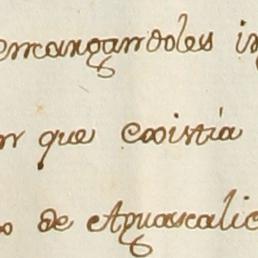 encargandoles in
n que existia
o de Aguascalie